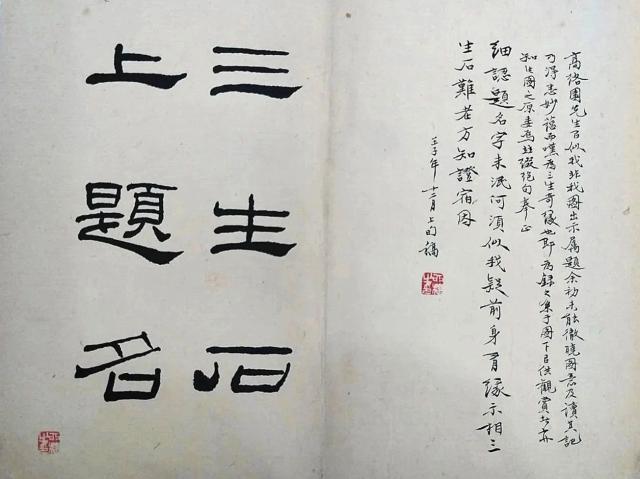 高络園先生似我非我圖出示属題余初未能徹曉圖意及讀其記
乃得悉妙蕴而嘆為三生奇緣也即為録集于圖下以供觀賞者亦
知此圖之原委焉并綴絶句奉正
細認題名字未泯何須似我疑前身有緣示相三
生石難老方知證宿因
壬子年十二月上旬稿
三生石
上題名